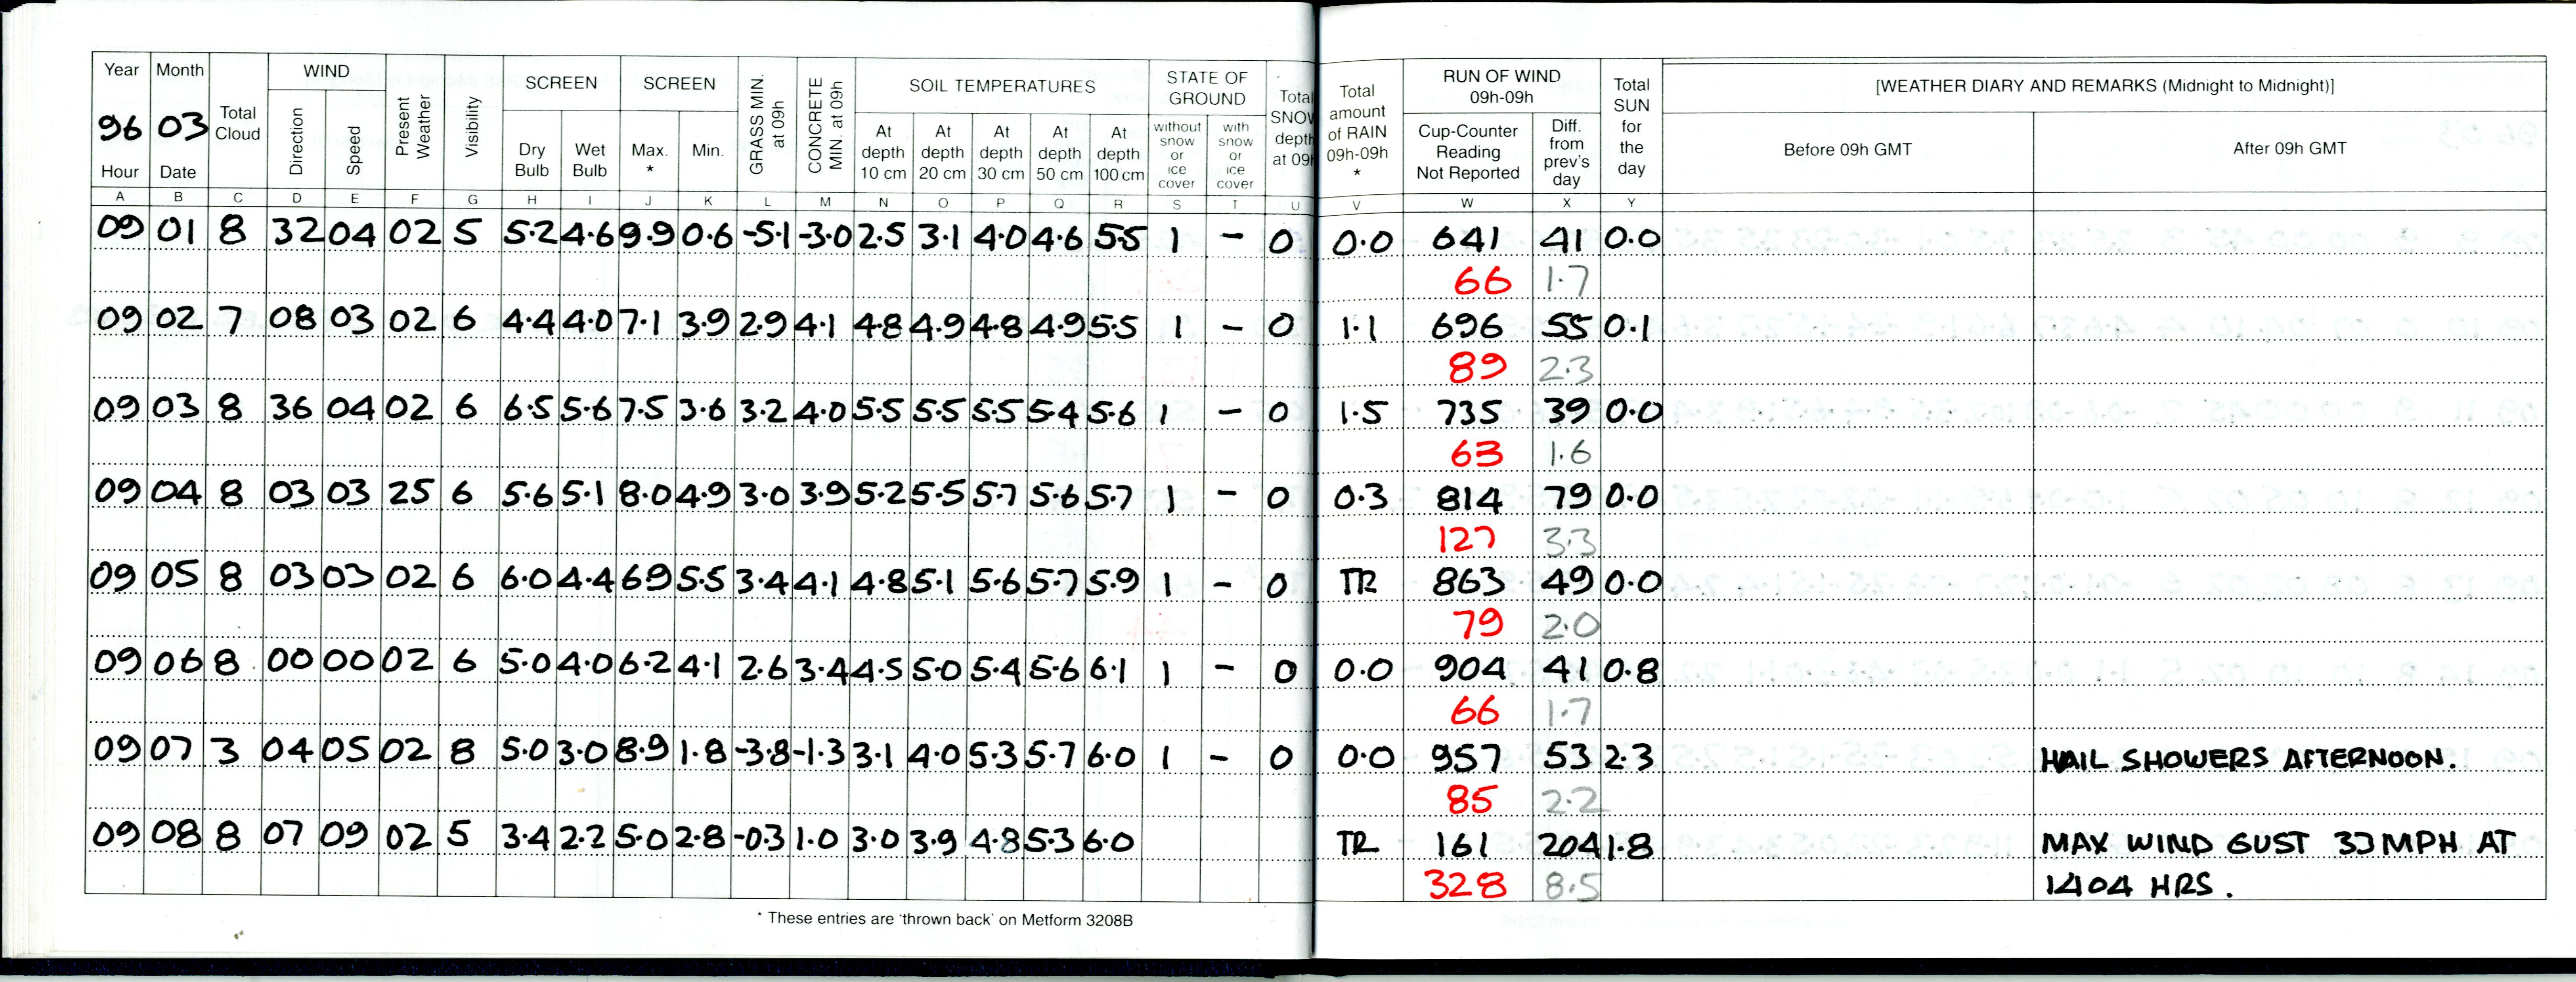 Year Month Total Cloud WIND Present Weather Visibility SCREEN SCREEN GRASS MIN. at 09h CONCRETE MIN. at 09h SOIL TEMPERATURES STATE OF GROUND Total SNOW depth at 09h Total amount of RAIN 09h-09h * RUN OF WIND 09h-09h Total SUN for the day [WEATHER DIARY AND REMARKS (Midnight to Midnight)]
96 03 Direction Speed Dry Bulb Wet Bulb Max. * Min. At depth 10 cm At depth 20 cm At depth 30 cm At depth 50 cm At depth 100 cm without snow or ice cover with snow or ice cover Cup-Counter Reading Not Reported Diff. from prev's day Before 09h GMT After 09h GMT
Hour Date
A B C D E F G H I J K L M N O P Q R S T U V W X Y
09 01 8 32 04 02 5 5.2 4.6 9.9 0.6 -5.1 -3.0 2.5 3.1 4.0 4.6 5.5 1 - 0 0.0 641 41 0.0
66 1.7
09 02 7 08 03 02 6 4.4 4.0 7.1 3.9 2.9 4.1 4.8 4.9 4.8 4.9 5.5 1 - 0 1.1 696 55 0.1
89 2.3
09 03 8 36 04 02 6 6.5 5.6 7.5 3.6 3.2 4.0 5.5 5.5 5.5 5.4 5.6 1 - 0 1.5 735 39 0.0
63 1.6
09 04 8 03 03 25 6 5.6 5.1 8.0 4.9 3.0 3.9 5.2 5.5 5.7 5.6 5.7 1 - 0 0.3 814 79 0.0
127 3.3
09 05 8 03 03 02 6 6.0 4.4 69 5.5 3.4 4.1 4.8 5.1 5.6 5.7 5.9 1 - 0 TR 863 49 0.0
79 2.0
09 06 8 00 00 02 6 5.0 4.0 6.2 4.1 2.6 3.4 4.5 5.0 5.4 5.6 6.1 1 - 0 0.0 904 41 0.8
66 1.7
09 07 3 04 05 02 8 5.0 3.0 8.9 1.8 -3.8 -1.3 3.1 4.0 5.3 5.7 6.0 1 - 0 0.0 957 53 2.3 HAIL SHOWERS AFTERNOON.
85 2.2
09 08 8 07 09 02 5 3.4 2.2 5.0 2.8 -0.3 1.0 3.0 3.9 4.8 5.3 6.0 TR 161 204 1.8 MAX WIND GUST 33 MPH AT
328 8.5 1404 HRS.
* These entries are 'thrown back' on Metform 3208B